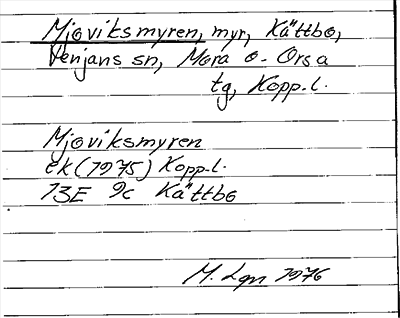 Mjoviksmyren, myr, Kättbo,
Venjans sn, Mora o. Orsa
tg, Kopp.l.
Mjoviksmyren
ek (1975) Kopp.l.
13E 9c Kättbo
M. Lgn 1976